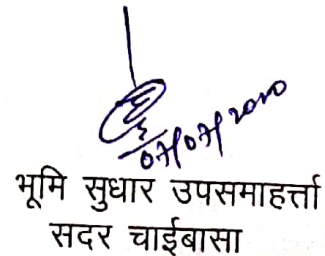 07/07/2020
भूमि सुधार उपसमाहर्त्ता
सदर चाईबासा